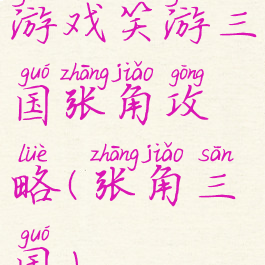 游戏笑游三
guó zhāng jiǎo gōng
国张角攻
lüè zhāng jiǎo sān
略(张角三
guó
国)